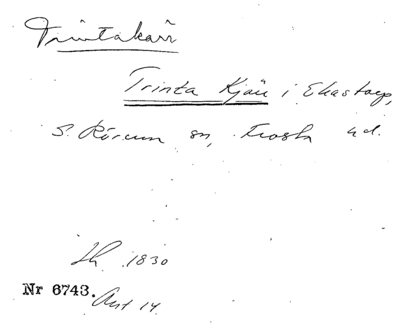 Trintakärr
Trinta Kjärr i Ekastorp,
S. Rörum sn, Frosta hd.
Lh 1830
Nr 6743. Ant 14